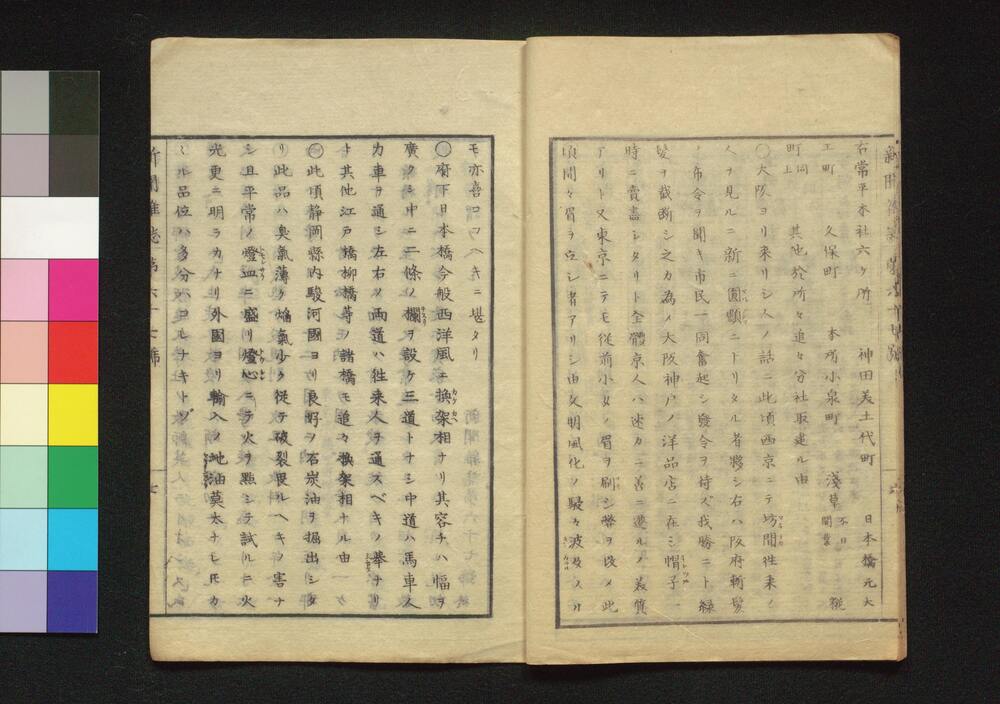 右常平本社六ヶ所　神田美土代町　日本橋元大
工町　久保町　本所小泉町　淺草 不日開業
町同上　其他於所々追々分社取建ル由
〇大阪ヨリ来リシ人ノ話ニ此頃西京ニテ坊間徃来ノ
人ヲ見ルニ新ニ圓顱ニトリタル者夥シ右ハ阪府斬髪
ノ布令ヲ聞キ市民一同奮起シ發令ヲ待ズ我勝ニト緑
髪ヲ截断シ之カ為メ大阪神戸ノ洋品店ニ在シ帽子一
時ニ賣盡シタリト全體京人ハ迷カニ善ニ遷ルノ美質
アリト又東京ニテモ従前小女ノ眉ヲ刷シ弊ヲ改メ此
頃間々眉ヲ シ者アリシ由文明風化ノ駸々波及スル
モ亦喜コフヘキニ堪タリ
〇府下日本橋今般西洋風ニ換架相ナリ其容チハ幅ヲ
廣クシ中ニ二條ノ欄ヲ設ケ三道トナシ中道ハ馬車人
力車ヲ通シ左右ノ両道ハ徃来人ヲ通スベキノ擧ナリ
ト其他江戸橋柳橋等ノ諸橋モ追々換架相ナル由
〇此頃静岡縣内駿河國ヨリ良好ノ石炭油ヲ掘出シタ
リ此品ハ臭氣薄ク焔氣少ク従テ破裂畏ルヘキノ害ナ
シ且平常ノ燈皿ニ盛リ燈心ニテ火ヲ點シテ試ルニ火
光更ニ明ラカナリ外國ヨリ輸入ノ地油莫太ナレ𪜈カ
ヽル品位ハ多分ハコレナキトゾ
新聞雑誌第六十七號
七